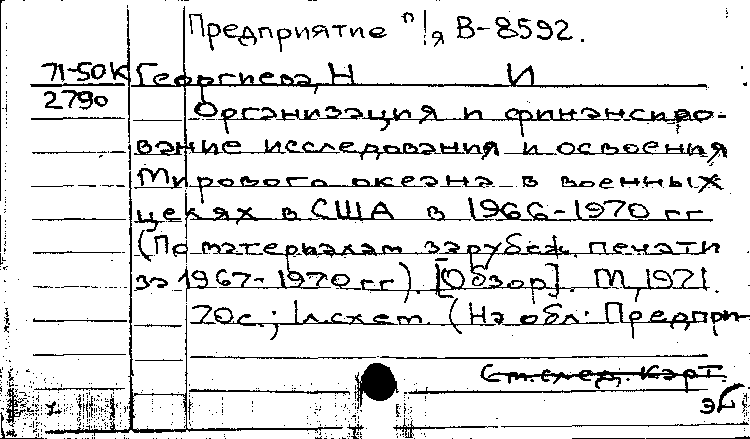 Предприятие п/я В-8592.
71-50К Георгиева, Н И
2790
Организация и финансиро-
вание исследования и освоения
Мирового океана в военных
целях в США в 1966-1970 гг
(По материалам зарубеж. печати
за 1967-1970 гг). [Обзор]. М, 1971.
70с.; 1л.схем. (На обл: Предпри-
См.след. карт.